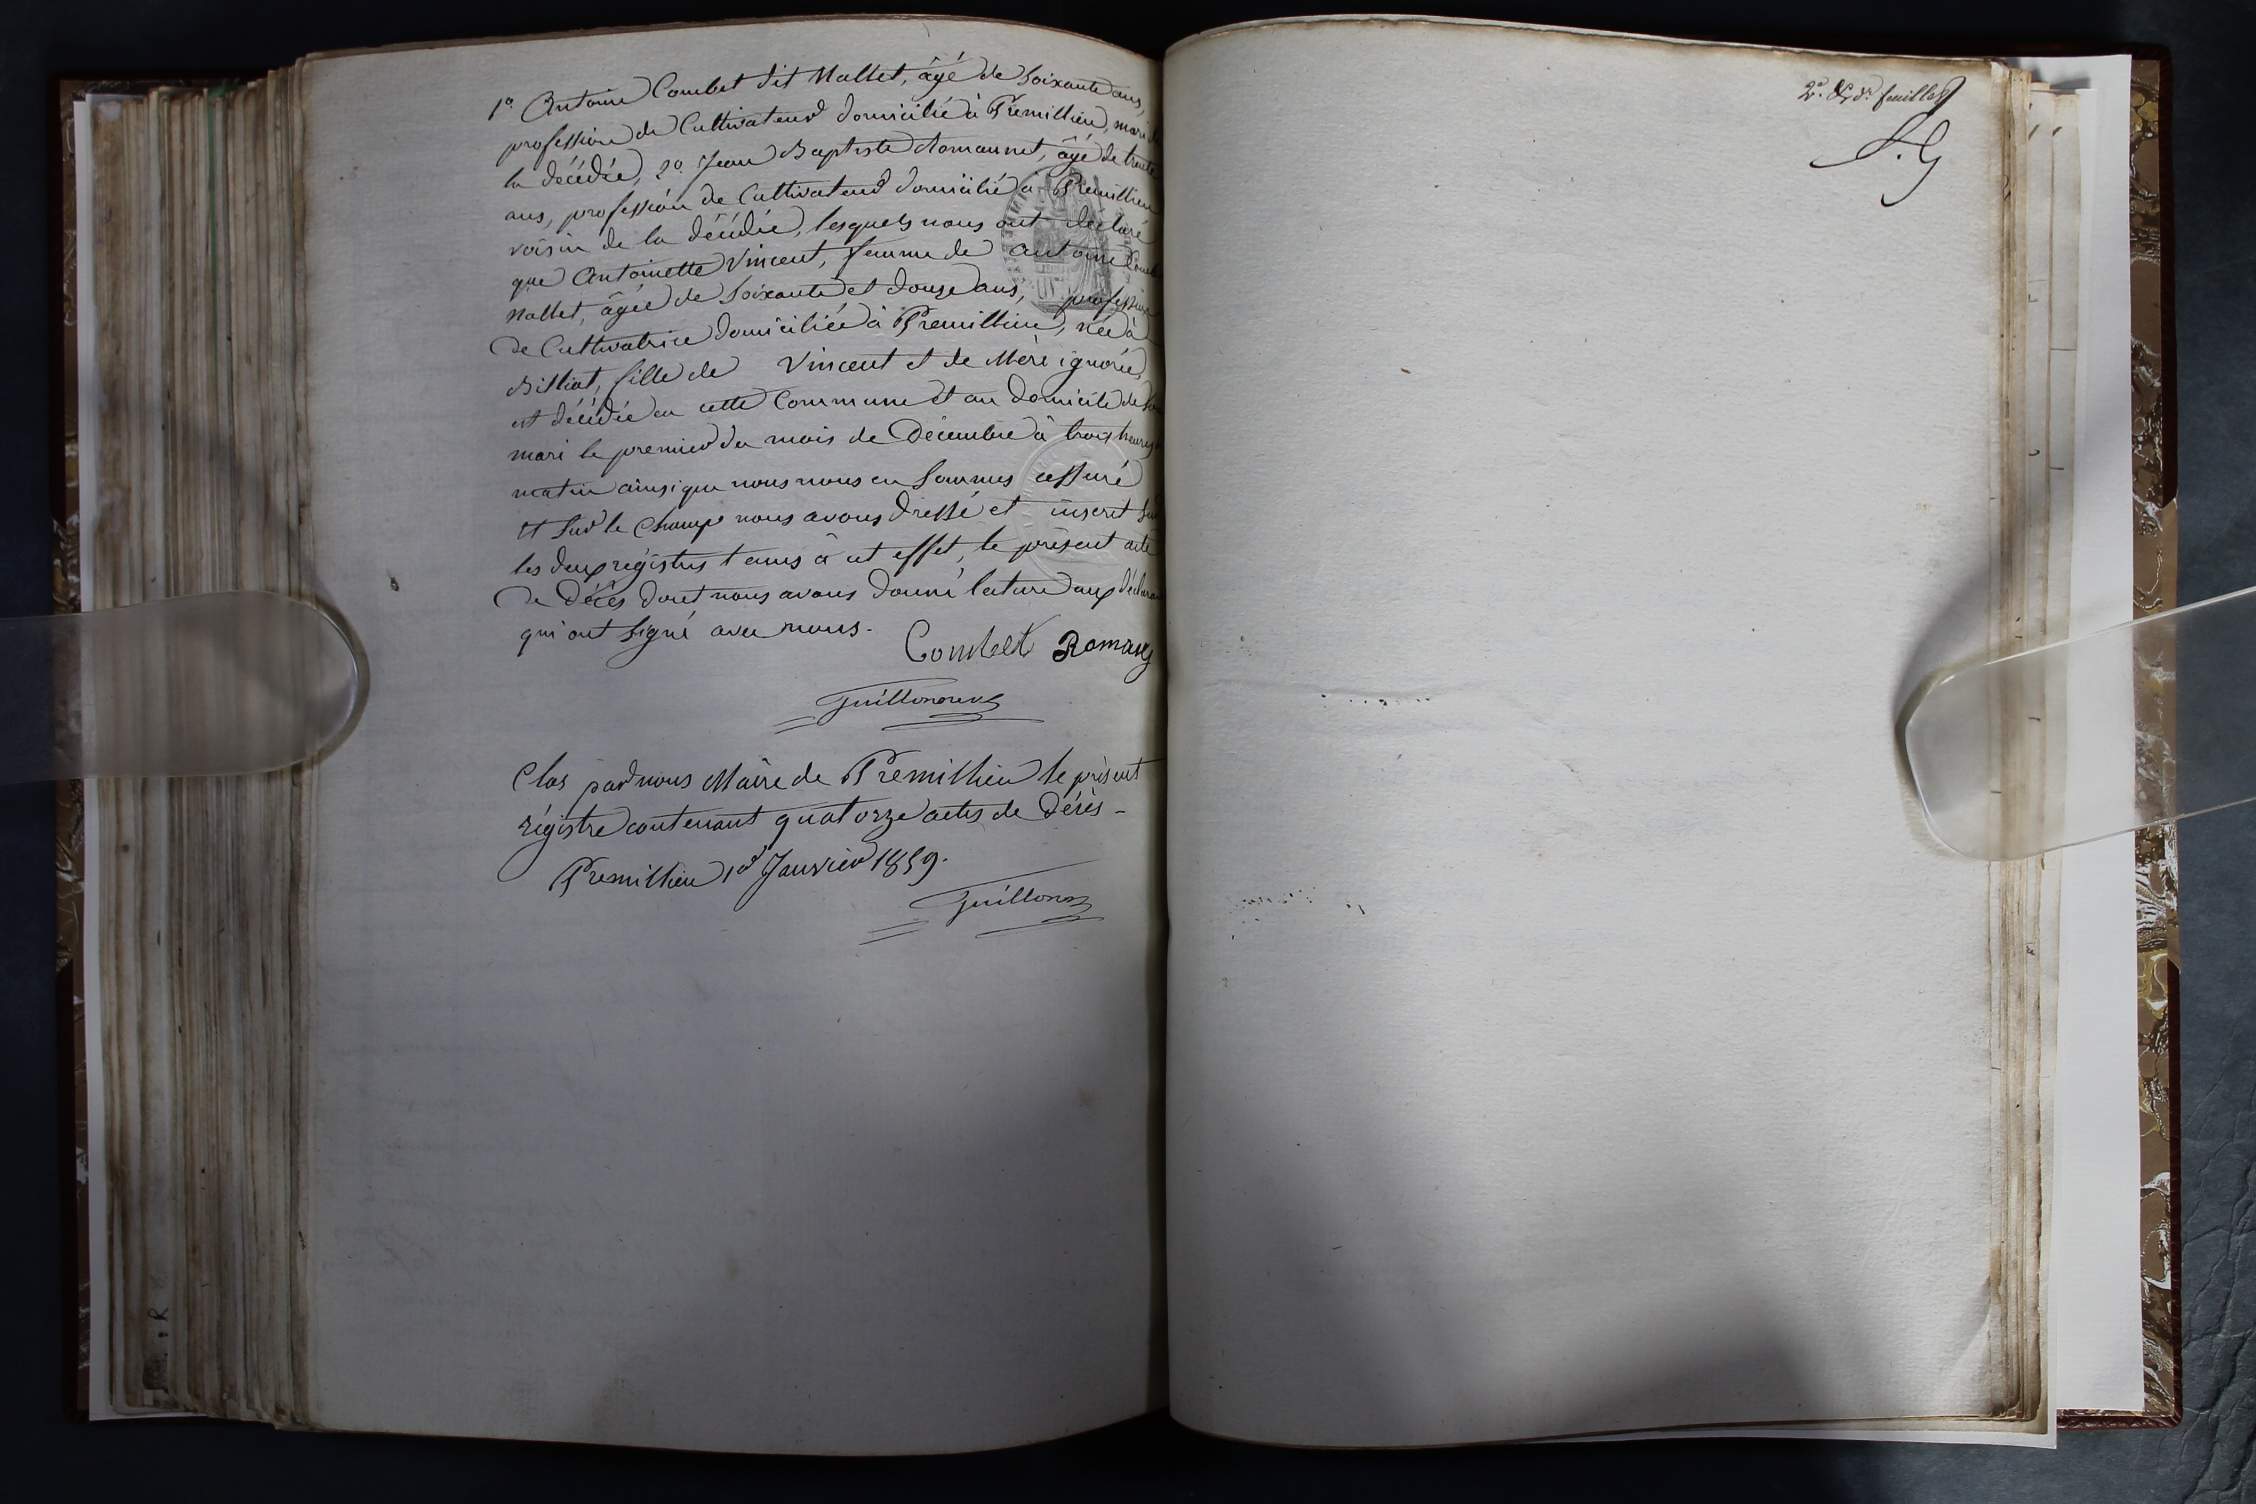 1o. Antoine Combet dit Mallet, âgé de Soixante ans,
profession de Cultivateur domicilié à Prémillieu, mari de
la décédée, 2o. Jean Baptiste Romannet, âgé de trente
ans, profession de Cultivateur domicilié à Prémillieu
voisin de la décédée, lesquels nous ont déclaré
que Antoinette Vincent, femme de Antoine Combet
Mallet, âgée de Soixante et douze ans, profession
de Cultivatrice domiciliée à Premillieu, née à
Billiat, fille de Vincent et de Mère ignorée,
est décédée en cette Commune et au domicile de son
mari le premier du mois de Décembre à trois heures
matin ainsi que nous nous en sommes assuré
et sur le champ nous avons dressé et inscrit sur
les deux régistres tenus à cet effet, le présent acte
de Décès dont nous avons donné lecture aux déclarants
qui ont signé avec nous.
Combet Roman
Guillon
Clos par nous Maire de Premillieu le présent
régistre contenant quatorze actes de Décès -
Premillieu 1er Janvier 1859.
Guillon
2e. & dr. feuillet